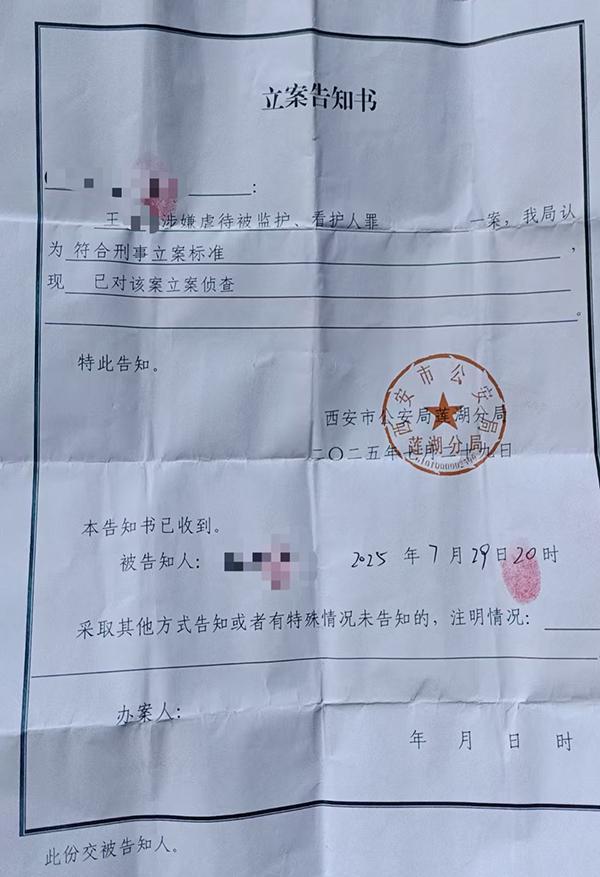 立案告知书
：
王 涉嫌虐待被监护、看护人罪 一案，我局认
为 符合刑事立案标准 ，
现 已对该案立案侦查
。
特此告知。
西安市公安局莲湖分局
二〇二五年七月二十九日
西安市公安局
莲湖分局
本告知书已收到。
被告知人： 2025 年 7 月 29 日 20 时
采取其他方式告知或者有特殊情况未告知的，注明情况：
办案人：
年 月 日 时
此份交被告知人。